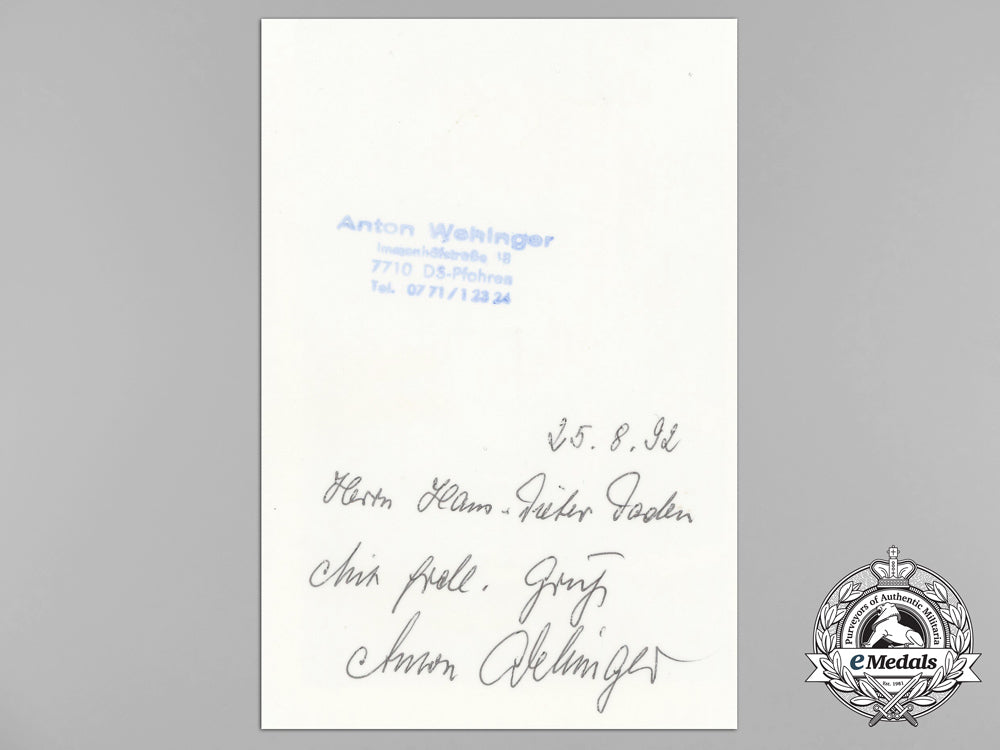 Anton Wehinger
18
7710 DS-Pfohren
Tel. 07 71 / 1 23 24
25. 8. 92
Herrn Hans-Dieter Daden
Mit frdl. Gruß
Anton Wehinger
Purveyors of Authentic Militaria
eMedals
Est. 1981